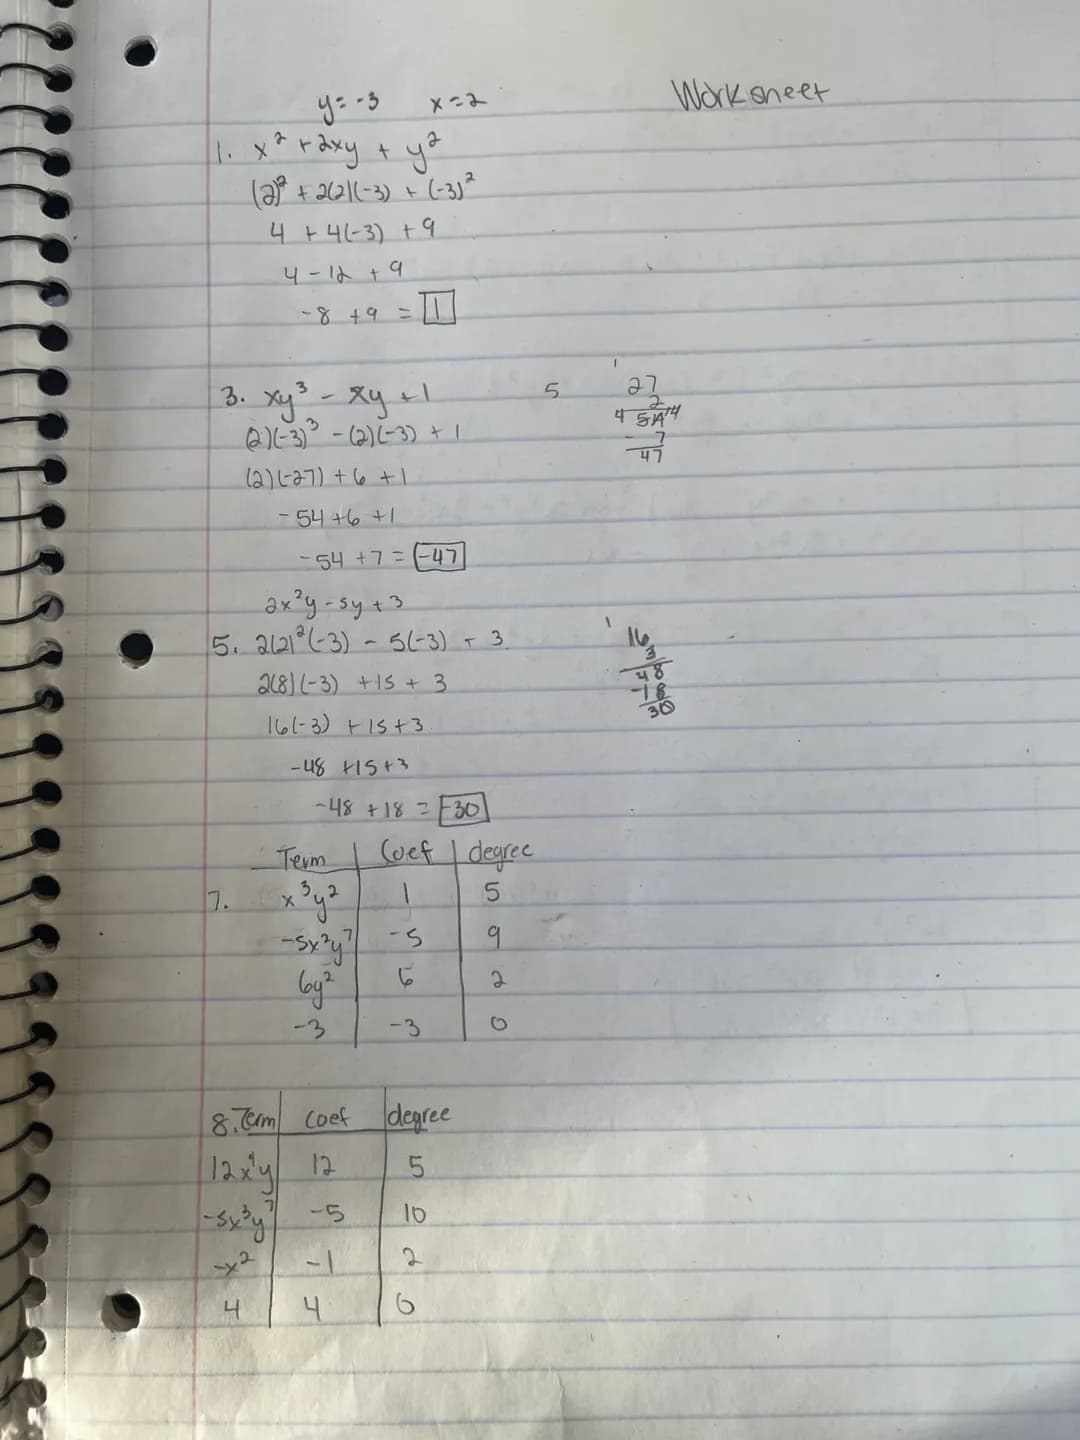 Worksheet
y = -3 x = 2
1. x² + 2xy + y²
(2)² + 2(2)(-3) + (-3)²
4 + 4(-3) + 9
4 - 12 + 9
-8 + 9 = 1
3. xy³ - xy + 1
(2)(-3)³ - (2)(-3) + 1
(2)(-27) + 6 + 1
-54 + 6 + 1
-54 + 7 = -47
5
1
27
2
4 54 14
- 7
47
2x²y - 5y + 3
5. 2(2)²(-3) - 5(-3) + 3
2(8)(-3) + 15 + 3
16(-3) + 15 + 3
-48 + 15 + 3
-48 + 18 = -30
1
16
3
48
-18
30
Term Coef degree
7. x³y² 1 5
-5x²y⁷ -5 9
6y² 6 2
-3 -3 0
8. Term coef degree
12x⁴y 12 5
-5x³y⁷ -5 10
-x² -1 2
4 4 0